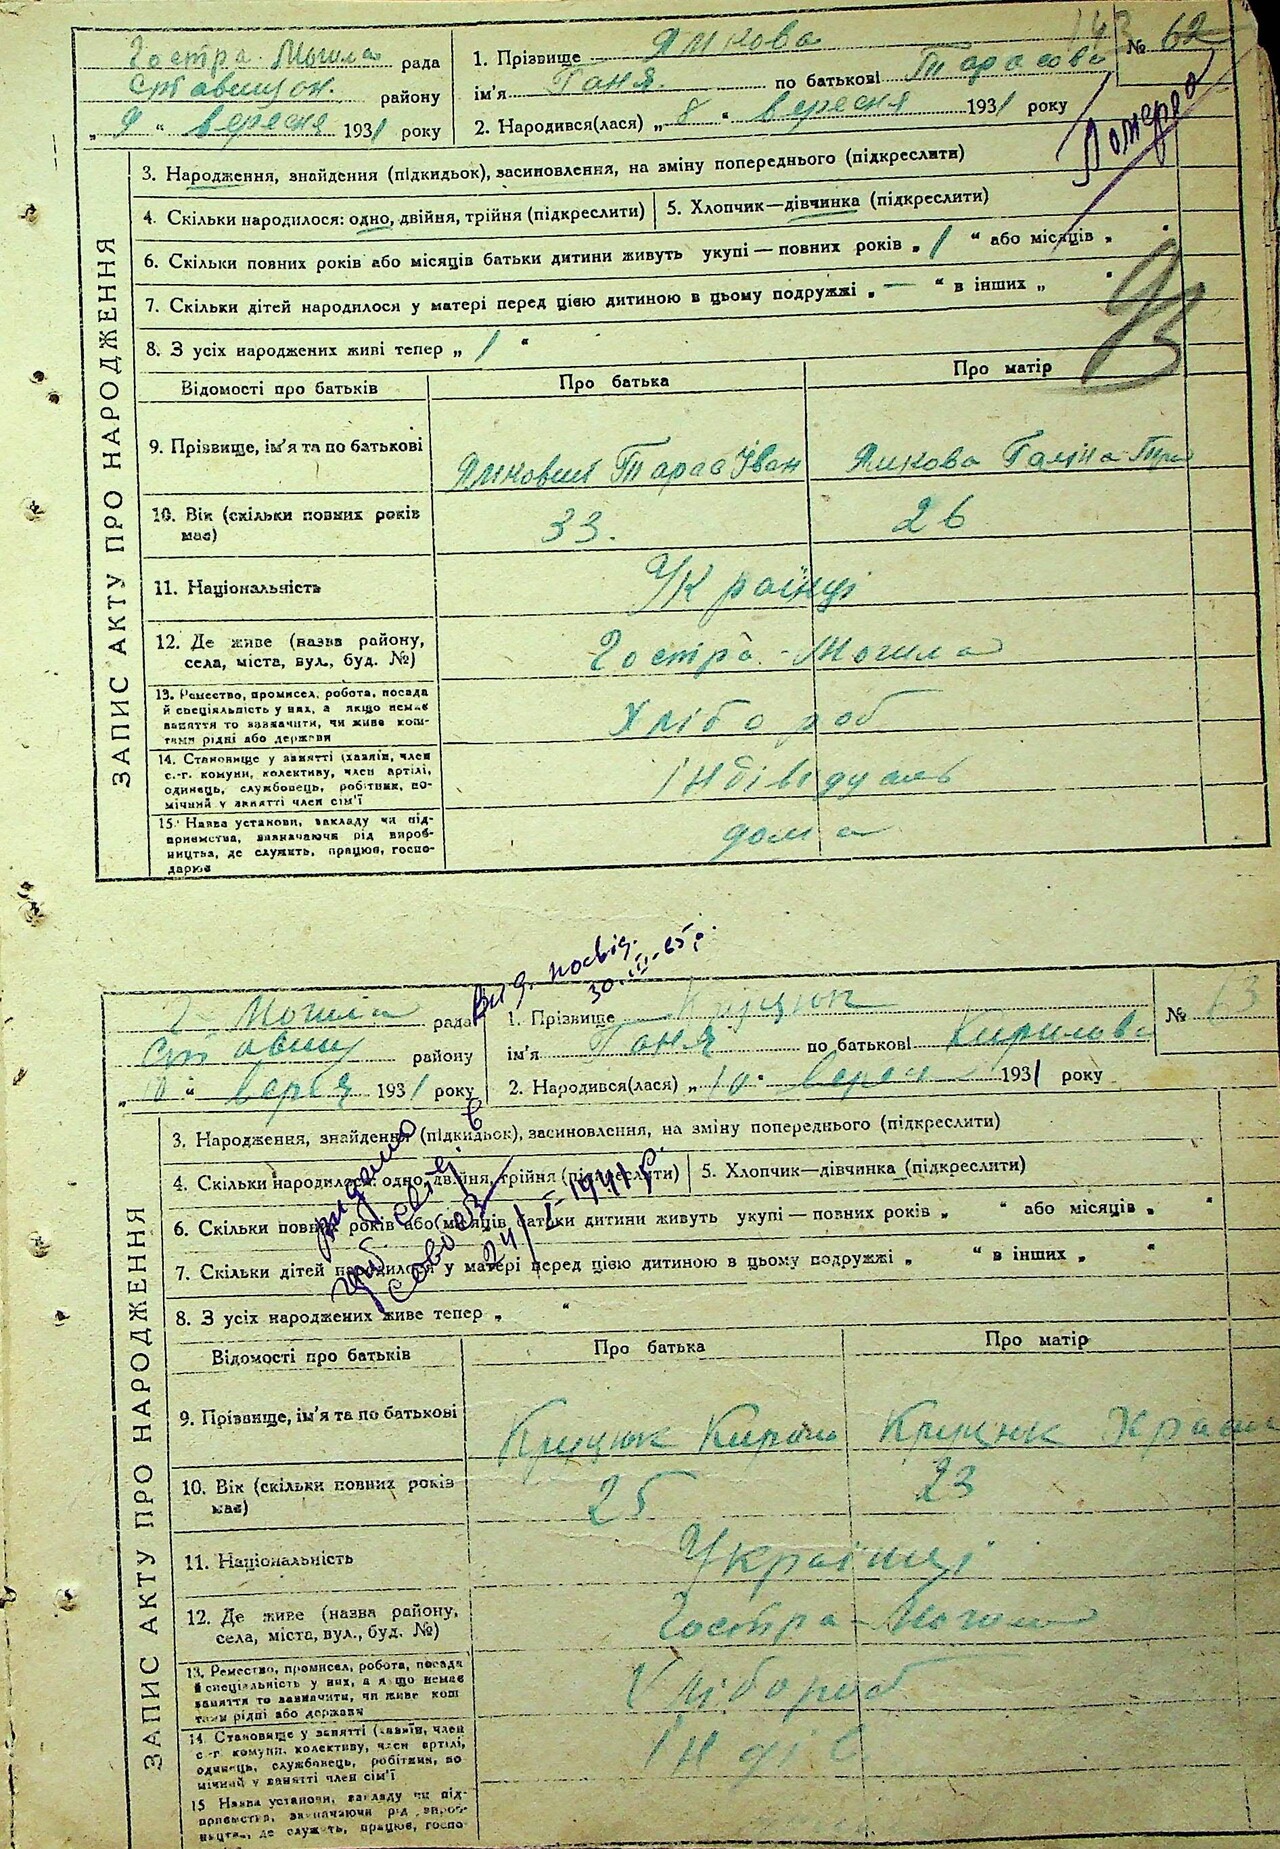 143
Гостра-Могила рада
Ставищан. району
„ 9 “ вересня 1931 року
1. Прізвище Ямкова № 62
ім'я Ганя по батькові Тарасова
2. Народився(лася) „ 8 “ вересня 1931 року
Померла
ЗАПИС АКТУ ПРО НАРОДЖЕННЯ
3. Народження, знайдення (підкидьок), засиновлення, на зміну попереднього (підкреслити)
4. Скільки народилося: одно, двійня, трійня (підкреслити) 5. Хлопчик—дівчинка (підкреслити)
6. Скільки повних років або місяців батьки дитини живуть укупі — повних років „ 1 “ або місяців „ “
7. Скільки дітей народилося у матері перед цією дитиною в цьому подружжі „ — “ в інших „ “
8. З усіх народжених живі тепер „ 1 “
Відомості про батьків Про батька Про матір
9. Прізвище, ім'я та по батькові Ямковий Тарас Іван Ямкова Галіна
10. Вік (скільки повних років має) 33. 26
11. Національність Українці
12. Де живе (назва району, села, міста, вул., буд. №) Гостра-Могила
13. Ремество, промисел, робота, посада й спеціяльність у них, а якщо немає заняття то зазначити, чи живе коштами рідні або держави Хлібороб
14. Становище у занятті (хазяїн, член с.-г. комуни, колективу, член артілі, одинець, службовець, робітник, помічний у занятті член сім'ї Індівідуаль
15. Назва установи, закладу чи підприємства, визначаючи рід виробництва, де служить, працює, господарює дома
Вид. посвід.
30.III-65р.
Г-Могила рада
Ставищ району
„ 10 “ верся 1931 року
1. Прізвище Круцюк № 63
ім'я Ганя по батькові Кирилова
2. Народився(лася) „ 10 “ 1931 року
видано
24/I-1941 р.
ЗАПИС АКТУ ПРО НАРОДЖЕННЯ
3. Народження, знайдення (підкидьок), засиновлення, на зміну попереднього (підкреслити)
4. Скільки народилося: одно, двійня, трійня (підкреслити) 5. Хлопчик—дівчинка (підкреслити)
6. Скільки повних років або місяців батьки дитини живуть укупі — повних років „ “ або місяців „ “
7. Скільки дітей народилося у матері перед цією дитиною в цьому подружжі „ “ в інших „ “
8. З усіх народжених живе тепер „ “
Відомості про батьків Про батька Про матір
9. Прізвище, ім'я та по батькові Круцюк Кирило Круцюк
10. Вік (скільки повних років має) 25 23
11. Національність Українці
12. Де живе (назва району, села, міста, вул., буд. №) Гостра-Могила
13. Ремество, промисел, робота, посада й спеціяльність у них, а якщо немає заняття то зазначити, чи живе коштами рідні або держави Хлібороб
14. Становище у занятті (хазяїн, член с-г. комуни, колективу, член артілі, одинець, службовець, робітник, помічний у занятті член сім'ї Індів
15 Назва установи, закладу чи підприємства, визначаючи рід виробництва, де служить, працює, госпо-